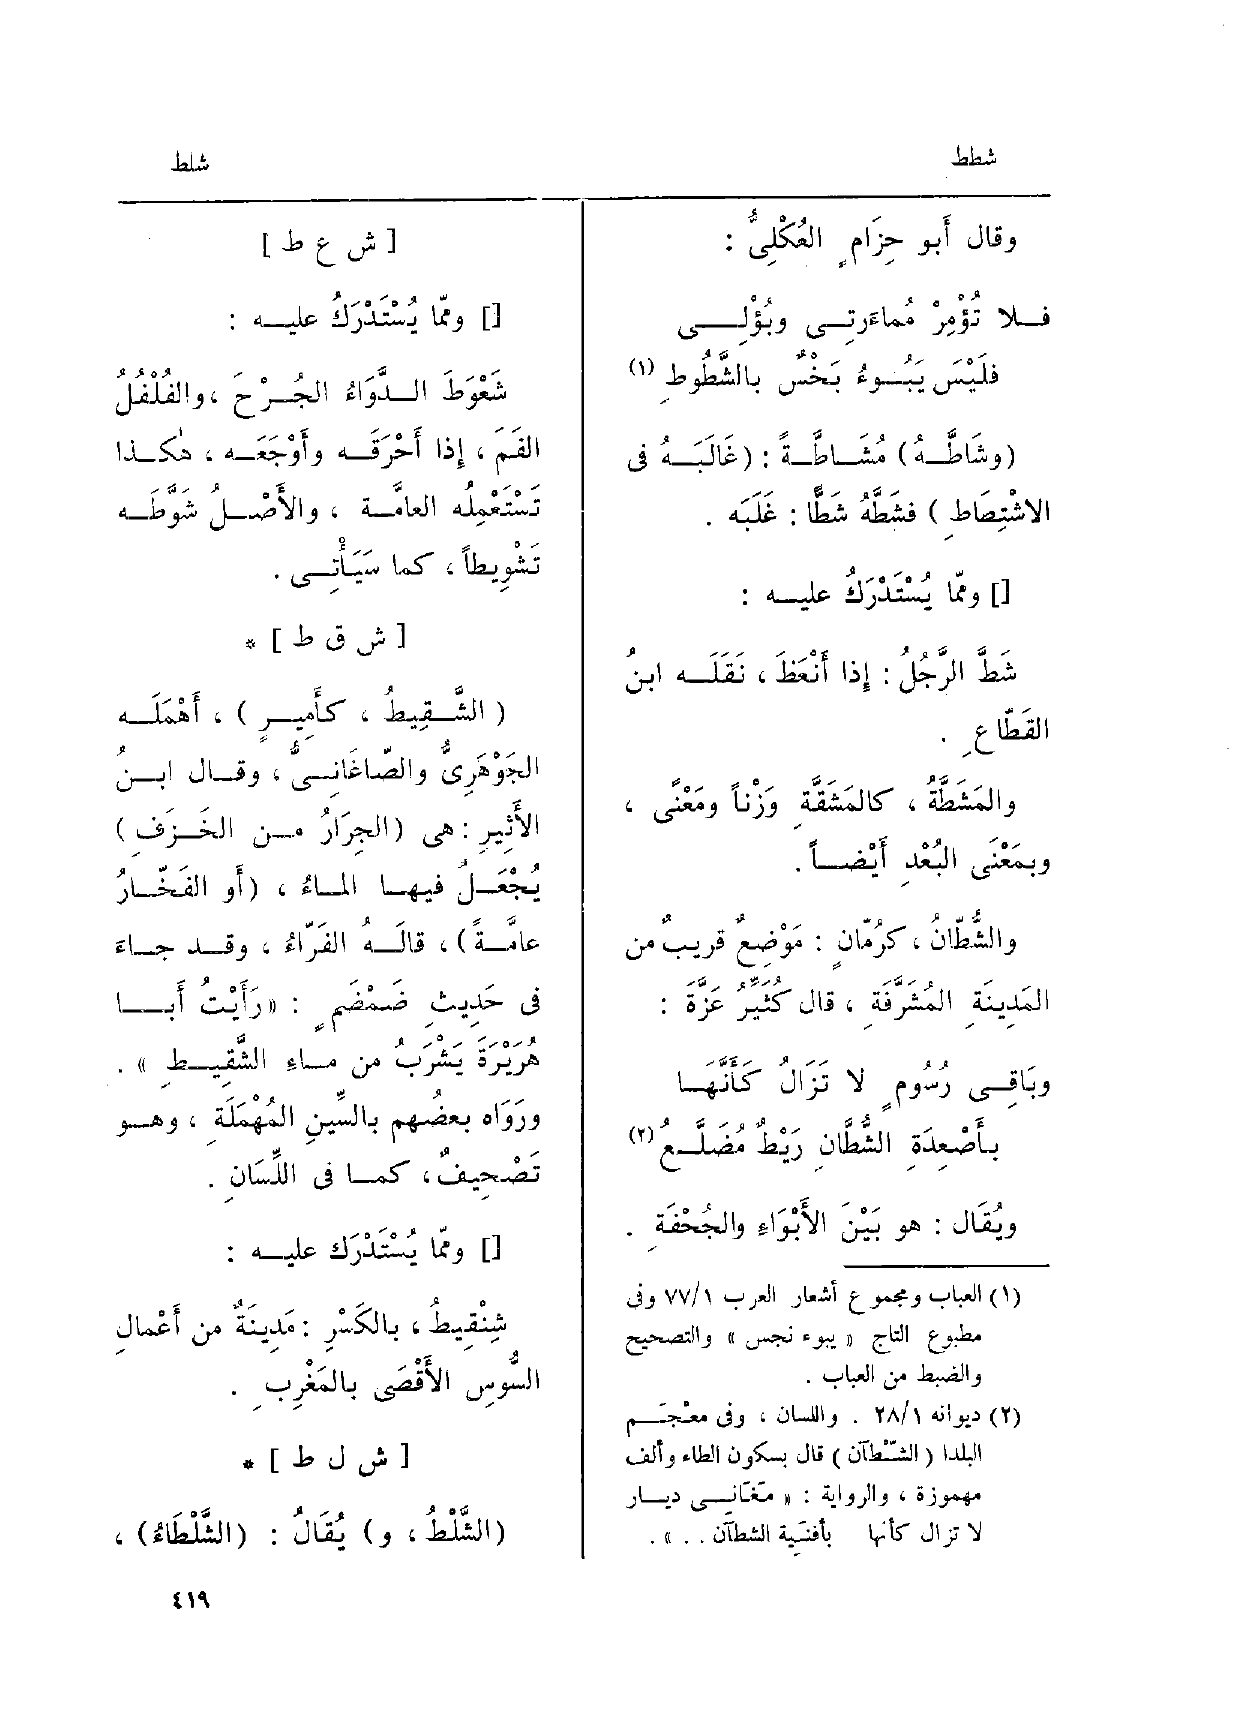 شطط
شلط
وقال أَبو حِزَامٍ العُكْلِىُّ :
فــلا تُؤْمِرْ مُماءَرتِــى وبُؤْلِـــى
فَلَيْس يَبُــوءُ بَخْسٌ بالشَّطُوطِ (١)
(وشَاطَّــهُ) مُشَــاطَّــةً : (غَالَبَــهُ فى
الاشْتِطَاطِ ) فشَطَّهُ شَطًّا : غَلَبَه .
[] وممّا يُسْتَدْرَكُ عليــه :
شَطَّ الرَّجُلُ : إِذا أَنْعَظَ ، نَقَلَــه ابنُ
القَطّاعِ .
والمَشَطَّةُ ، كالمَشَقَّةِ وَزْناً ومَعْنًى ،
وبمَعْنَى البُعْدِ أَيْضــاً .
والشُّطّانُ ، كرُمّانٍ : مَوْضِعٌ قريبٌ من
المَدِينَةِ المُشَرَّفَةِ ، قال كُثَيِّرُ عَزَّةَ :
وبَاقِــى رُسُومٍ لا تَزَالُ كَأَنَّهــا
بأَصْعِدَةِ الشُّطَّانِ رَيْطٌ مُضَلَّــعُ (٢)
ويُقَال : هو بَيْنَ الأَبْوَاءِ والجُحْفَةِ .
(١) العباب ومجموع أشعار العرب ٧٧/١ وفى
مطبوع التاج « يبوء نجس » والتصحيح
والضبط من العباب .
(٢) ديوانه ٢٨/١ . واللسان ، وفى معْجَــم
البلدا (الشَّطآن ) قال بسكون الطاء وألف
مهموزة ، والرواية : « مَغَانِــى ديــار
لا تزال كأنها بأفنية الشطآن . . » .
[ ش ع ط ]
[] وممّا يُسْتَدْرَكُ عليــه :
شَعْوَطَ الــدَّوَاءُ الجُــرْحَ ، والفُلْفُلُ
الفَمَ ، إِذا أَحْرَقَــه وأَوْجَعَــه ، هٰكــذا
تَسْتَعْمِلُه العامَّــة ، والأَصْــلُ شَوَّطَــه
تَشْوِيطاً ، كما سَيَأْتِــى .
[ ش ق ط ] *
( الشَّــقِيطُ ، كأَمِيــرٍ ) ، أَهْمَلَــه
الجَوْهَرِىُّ والصّاغَانِــىُّ ، وقــال ابــنُ
الأَثِير : هى (الجِرَارُ مــن الخَــزَفِ )
يُجْعَــلُ فيهــا المــاءُ ، (أَو الفَخّــارُ
عامَّــةً ) ، قالَــهُ الفَرّاءُ ، وقــد جــاءَ
فى حَدِيــثِ ضَمْضَمٍ : « رَأَيْتُ أَبــا
هُرَيْرَةَ يَشْرَبُ من مــاءِ الشَّقِيــطِ » .
ورَوَاه بعضُهم بالسِّينِ المُهْمَلَةِ ، وهــو
تَصْحِيفٌ ، كمــا فى اللِّسَانِ .
[] وممّا يُسْتَدْرَك عليــه :
شِنْقِيطُ ، بالكَسْرِ : مَدِينَةٌ من أَعْمالِ
السُّوسِ الأَقْصَى بالمَغْرِبِ .
[ ش ل ط ] *
(الشَّلْطُ ، و) يُقَالُ : (الشَّلْطَاءُ) ،
٤١٩